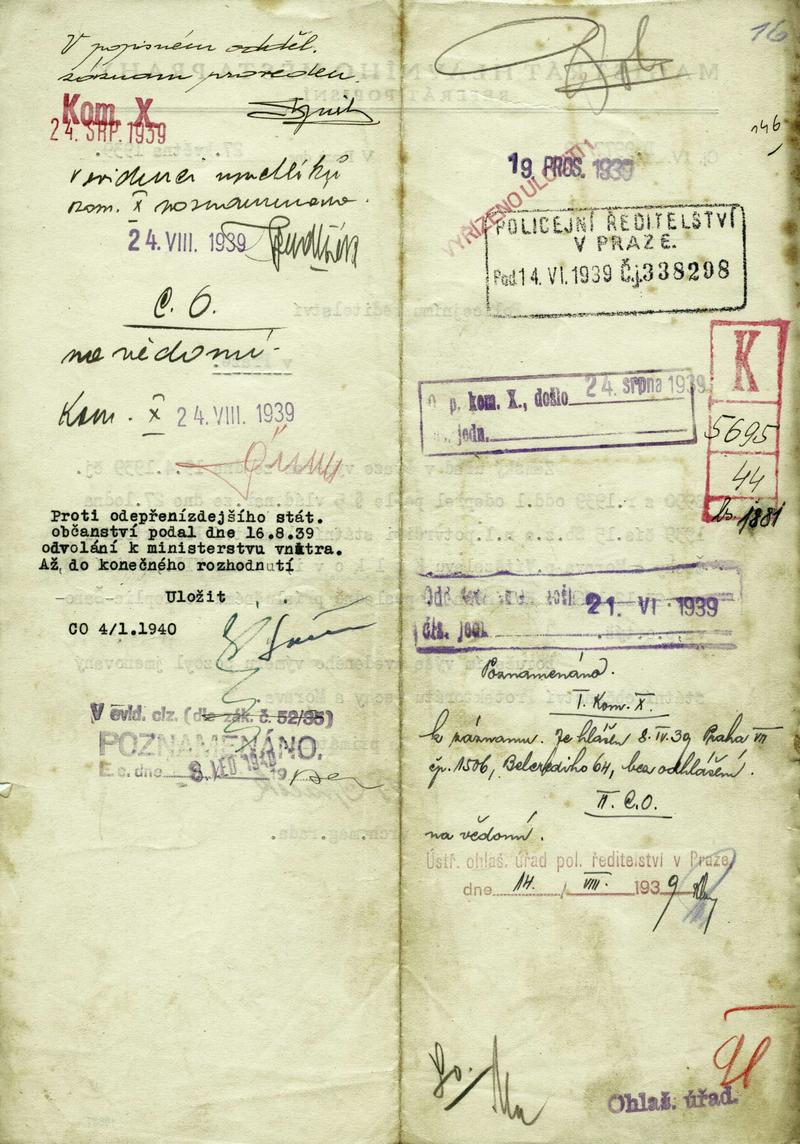 V popisném odděl.
záznam proveden.
Kom. X.
24. SRP. 1939
V evidenci
kom. X poznamenáno.
24. VIII. 1939
C. O.
na vědomí.
Kom. X 24. VIII. 1939
Proti odepřenízdejšího stát.
občanství podal dne 16.8.39
odvolání k ministerstvu vnitra.
Až do konečného rozhodnutí
Uložit
CO 4/1.1940
V evid. ciz. (dle zák. č. 52/35)
POZNAMENÁNO.
E. c. dne 8. LED. 1940 19
16
146
19 PROS. 1939
VYŘÍZENO ULOŽITI!
POLICEJNÍ ŘEDITELSTVÍ
V PRAZE.
Pod 14. VI. 1939 Č.j. 338298
K
5695
44
1881
p. kom. X., došlo 24. srpna 1939
jedn.
21. VI 1939
čís. jedn.
Poznamenáno.
I. Kom. X.
k záznamu. Je hlášen 8. IV. 39 Praha VII
čp. 1506, Belcrediho 64, bez odhlášení.
II. C.O.
na vědomí.
Ústř. ohlaš. úřad pol. ředitelství v Praze,
dne 14. / VIII. 1939
Ohlaš. úřad.